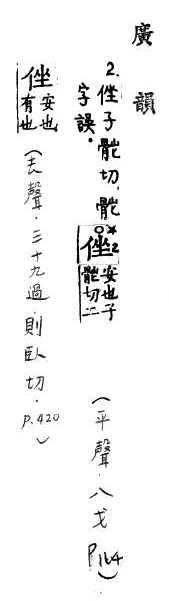 廣韻
2.侳子切,
字誤。
侳2
安也子
切二
(平聲.八戈 P164)
侳
安也
有也
(去聲.三十九過.則臥切.P.420)